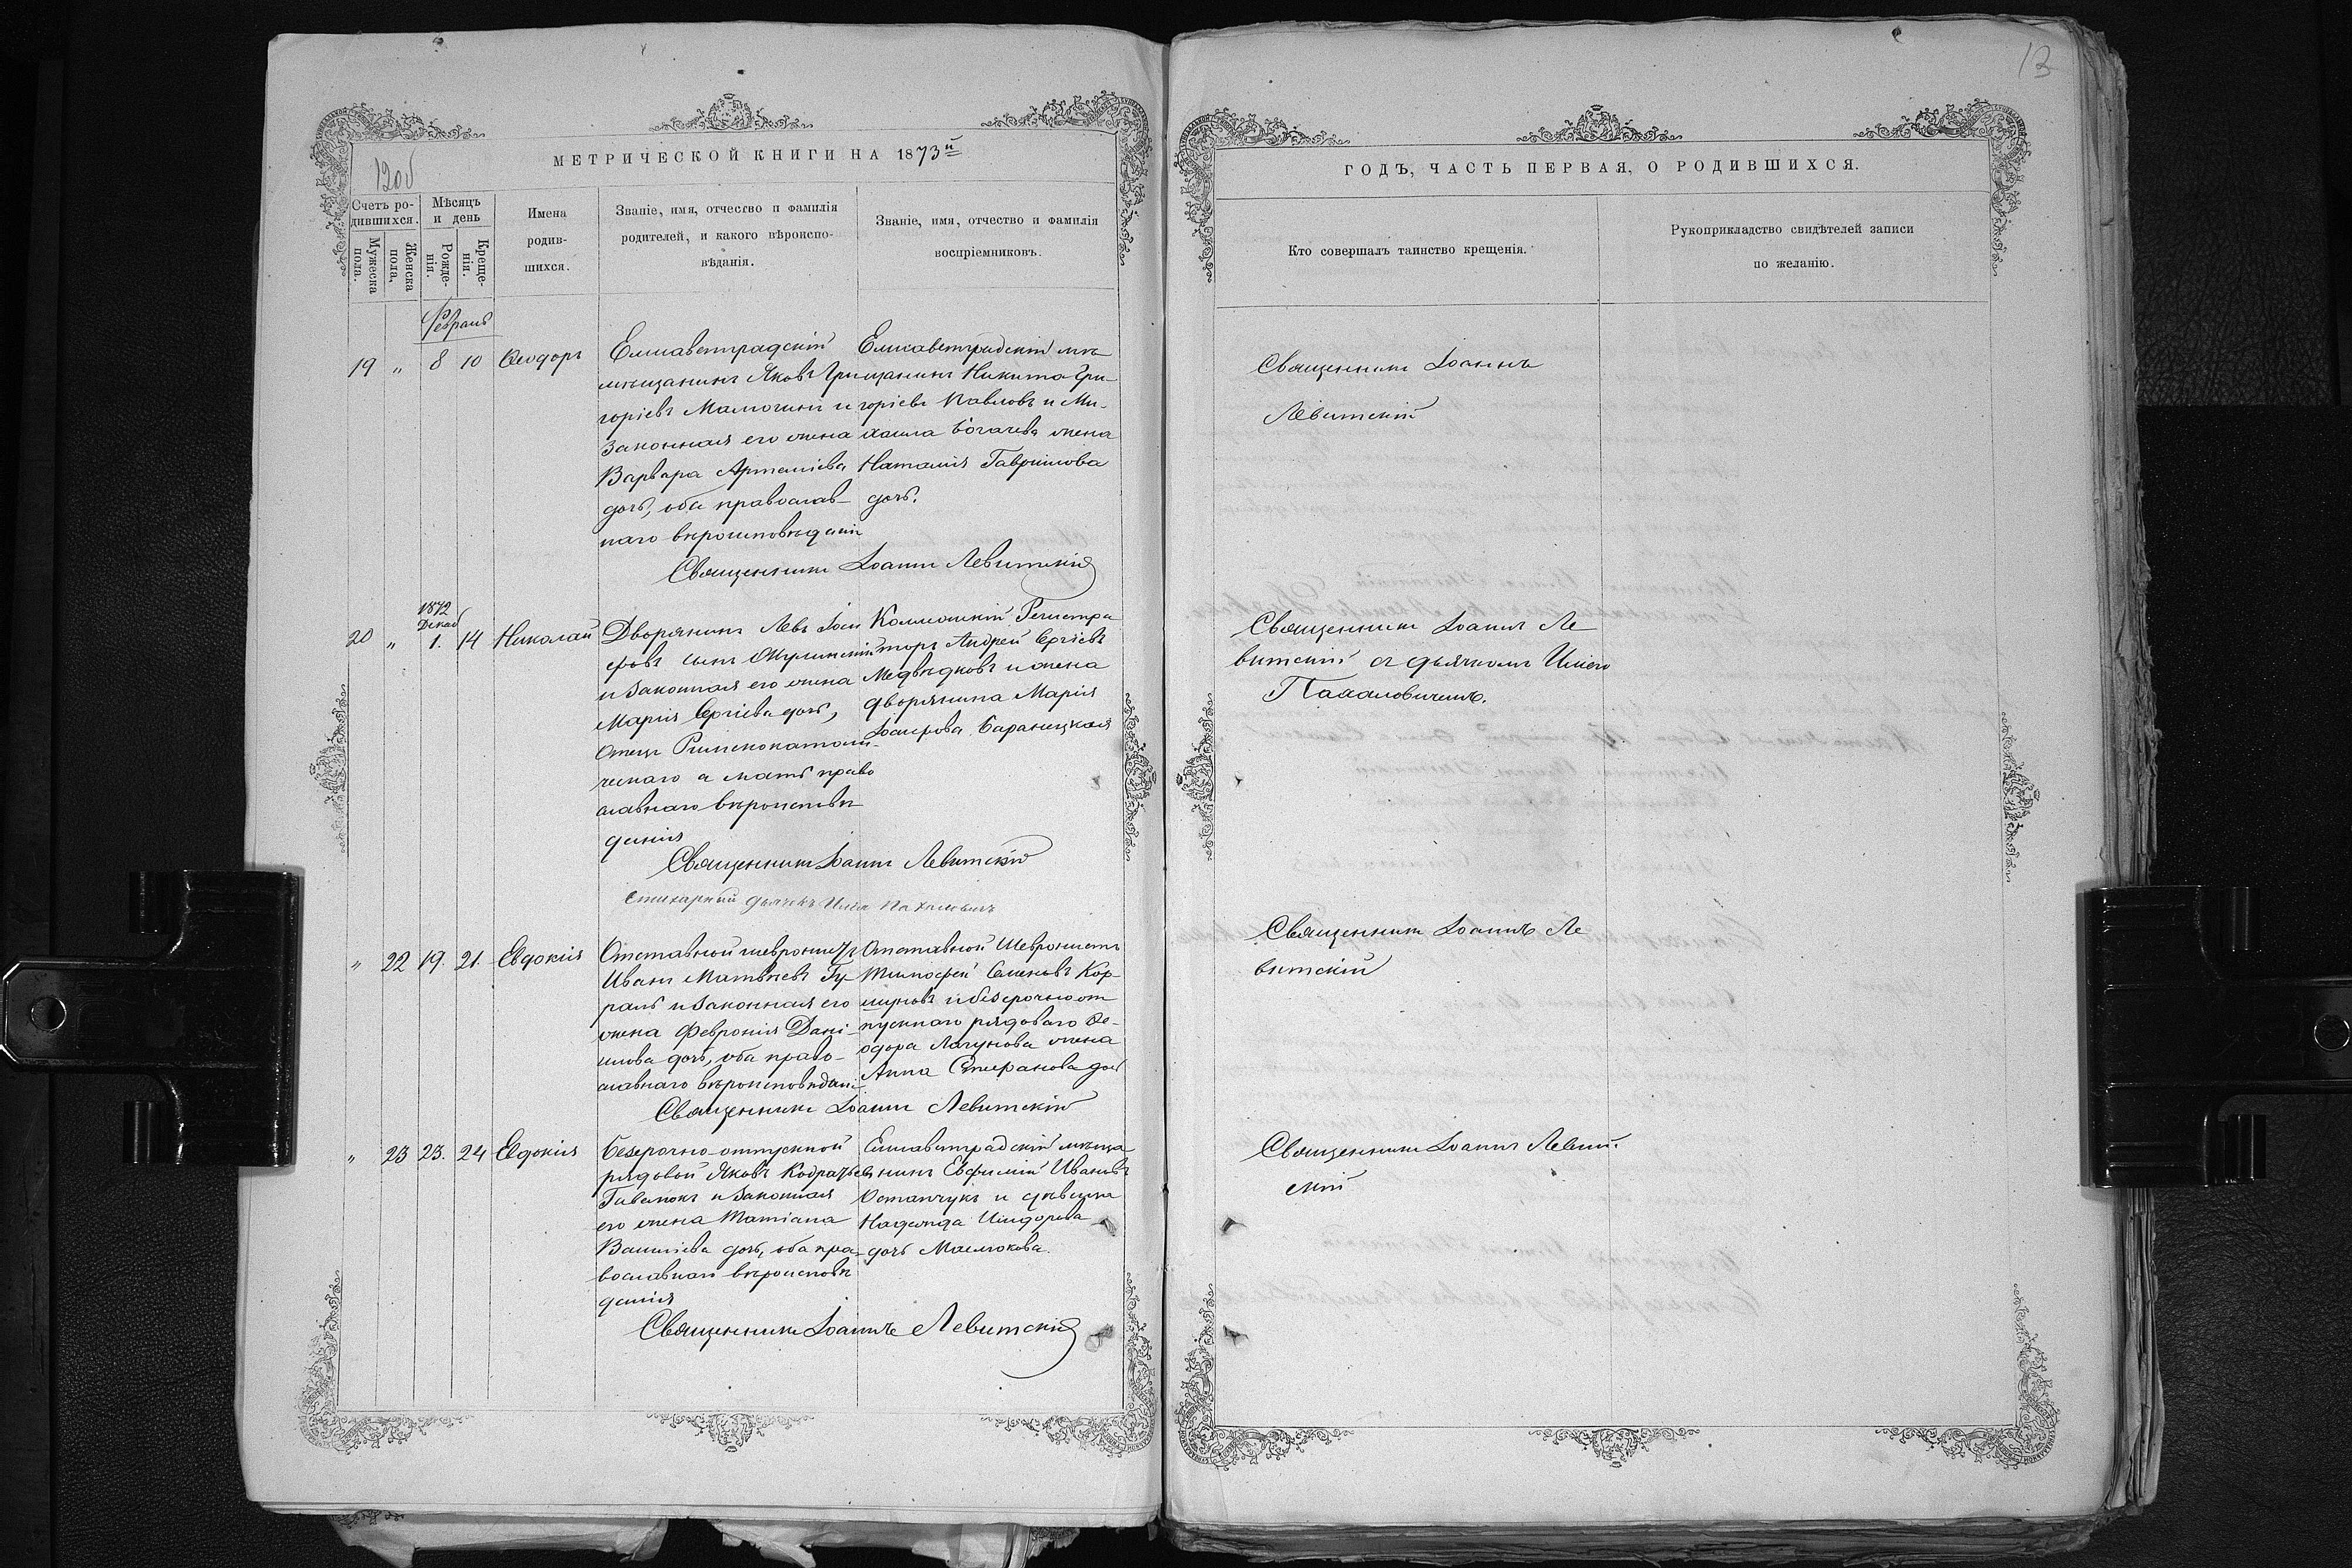 13
МЕТРИЧЕСКОЙ КНИГИ НА 1873й
Счетъ родившихся.
Мужеска пола.
Женска пола.
Мѣсяцъ и день
Рожденія.
Крещенія.
Имена родившихся.
Званіе, имя, отчество и фамилія
родителей, и какого вѣроиспо-
вѣданія.
Званіе, имя, отчество и фамилія
воспріемниковъ.
Февраль
19 " 8 10 Ѳеодоръ
Елисаветградскій
мѣщанинъ Яковъ Гри
горіевъ и
законная его жена
Варвара Артеміева
дочь, оба православ-
наго вѣроисповѣданія
Елисаветградскій мѣ
щанинъ Никита Гри-
горіевъ Павловъ и Ми-
хаила Богачева жена
Наталія Гавриилова
дочь.
Священникъ Іоаннъ Левитскій
1872
Декаб
20 " 1. 14 Николай
Дворянинъ Левъ Іоси
фовъ сынъ
и законная его жена
Марія Сергіева дочь,
отецъ Римскокатоли-
ческаго а мать право
славнаго вѣроисповѣ
данія
Коллежскій Регистра
торъ Андрей Сергіевъ
Медвѣдковъ и жена
дворянина Марія
Іосифова Баранецкая
Священникъ Іоаннъ Левитскій
Стихарный дьячекъ Илія Пахаловичъ
" 22 19. 21. Евдокія
Отставной шевронистъ
Иванъ Матвѣевъ Гу
раль и законная его
жена Февронія Дані-
илова дочь, оба право-
славнаго вѣроисповѣдані
Отставной Шевронистъ
Тимофей Семеновъ Кор-
и безсрочноот
пускнаго рядоваго Ѳе-
одора Лагунова жена
Анна Стефанова дочь
Священникъ Іоаннъ Левитскій
" 23 23. 24 Евдокія
Безсрочно-отпускной
рядовой Яковъ Кодратьевъ
и законная
его жена Татіана
Василіева дочь, оба пра-
вославнаго вѣроисповѣ
данія
Елисаветградскій мѣща
нинъ Евфимій Ивановъ
Остапчукъ и дѣвица
Надежда Исидорова
дочь Маслюкова.
Священникъ Іоаннъ Левитскій
ГОДЪ, ЧАСТЬ ПЕРВАЯ, О РОДИВШИХСЯ.
Кто совершалъ таинство крещенія.
Рукоприкладство свидѣтелей записи
по желанію.
Священникъ Іоаннъ
Левитскій
Священникъ Іоаннъ Ле
витскій съ дьячкомъ Иліею
Пахаловичемъ.
Священникъ Іоаннъ Ле
витскій
Священникъ Іоаннъ Левит-
скій